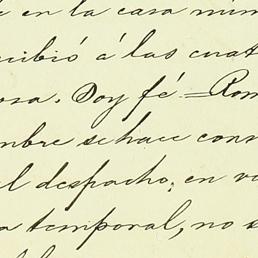 en la casa núm
cibió á las cuat
osa. Doy fé.=Rom
mbre se hace cons
el despacho, en v
a temporal, no s